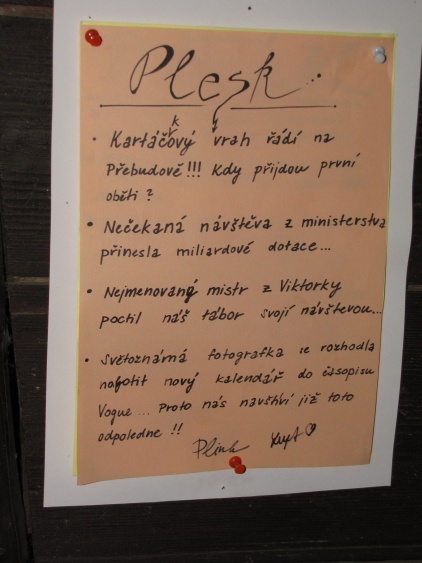 Plesk...
• Kartáčkový vrah řádí na
Přebudově!!! Kdy přijdou první
oběti?
• Nečekaná návštěva z ministerstva
přinesla miliardové dotace...
• Nejmenovaný mistr z Viktorky
poctil náš tábor svojí návštevou...
• Světoznámá fotografka se rozhodla
nafotit nový kalendář do časopisu
Vogue... Proto nás navštíví již toto
odpoledne!!